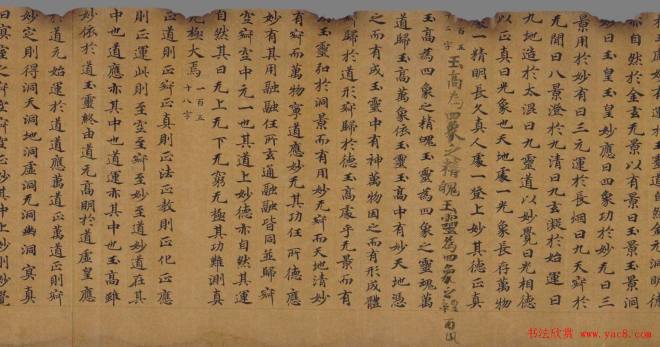 亦自然於金玄无景以有景曰玉景洞
妙曰玉皇玉皇妙應曰四象功於妙无曰三
景用於妙有曰三元運於長烟曰九天辯於
无聞曰八景澄於九清曰九玄凝於始運曰
九地造於太淚曰九靈道以妙覺曰光相德
以正真曰光象也天地處一光象長存萬物
一精明長久真人處一登上妙其德正真
百五
字
玉高為四象之精魄玉靈為四象之
玉高為四象之精魄玉靈為四象之靈魄萬
道歸玉高萬象依玉靈玉高中有妙天地憑
之而有成玉靈中有神萬物因之而有形成體
歸於道形辯歸於德玉高處乎无景而有
玉靈弘於洞景而有用妙无辯而天地清妙
有辯而萬物寧道應妙无其功任所德應
妙有其用融融任所玄通融融皆同並歸辯
辯空中元一也其道上妙德亦自然其運
自然其曰无上无下无窮无極其功難測真
无極大焉 一百五十八字
正道則正辯正真則正法正教則正化正應
則正運此則至空至辯至妙至道妙道在其
中也道應亦其中也道運亦其中也玉高雖
妙依於道玉靈終由道元高明於道虛皇應
道元始運於道道應萬道正萬道正則辯
妙定則得洞天洞地洞虛洞无洞幽洞冥真
书法欣赏 www.yac8.com